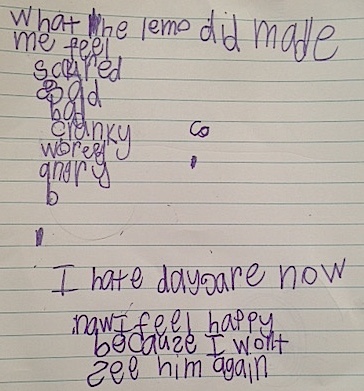 what the lemo did made
me feel
scared
sad
bad
cranky
co
worey
angry
b
I hate daycare now
now I feel happy
because I wont
see him again